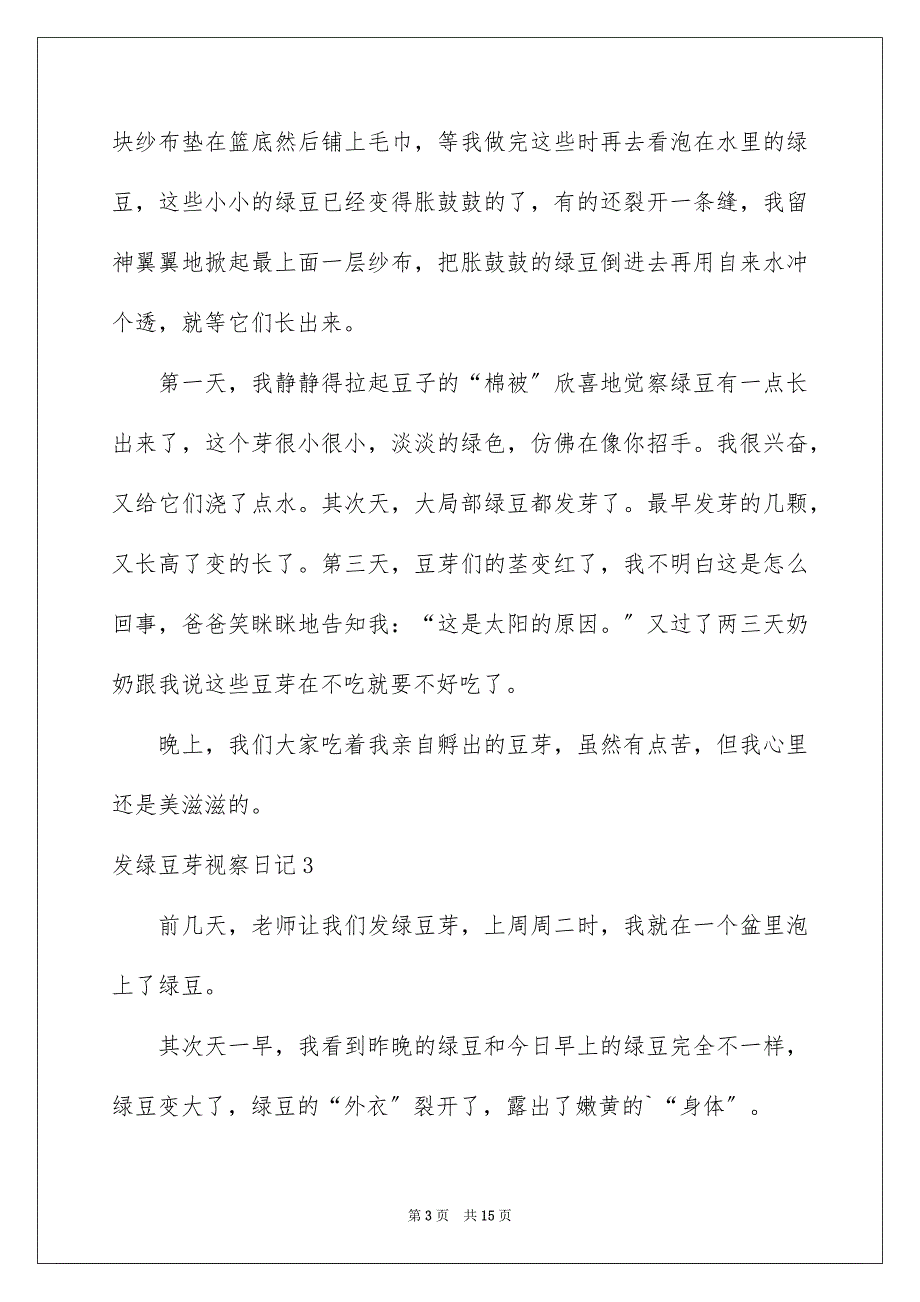 块纱布垫在篮底然后铺上毛巾，等我做完这些时再去看泡在水里的绿
豆，这些小小的绿豆已经变得胀鼓鼓的了，有的还裂开一条缝，我留
神翼翼地掀起最上面一层纱布，把胀鼓鼓的绿豆倒进去再用自来水冲
个透，就等它们长出来。
第一天，我静静得拉起豆子的“棉被〞欣喜地觉察绿豆有一点长
出来了，这个芽很小很小，淡淡的绿色，仿佛在像你招手。我很兴奋，
又给它们浇了点水。其次天，大局部绿豆都发芽了。最早发芽的几颗，
又长高了变的长了。第三天，豆芽们的茎变红了，我不明白这是怎么
回事，爸爸笑眯眯地告知我：“这是太阳的原因。〞又过了两三天奶
奶跟我说这些豆芽在不吃就要不好吃了。
晚上，我们大家吃着我亲自孵出的豆芽，虽然有点苦，但我心里
还是美滋滋的。
发绿豆芽视察日记 3
前几天，老师让我们发绿豆芽，上周周二时，我就在一个盆里泡
上了绿豆。
其次天一早，我看到昨晚的绿豆和今日早上的绿豆完全不一样，
绿豆变大了，绿豆的“外衣〞裂开了，露出了嫩黄的`“身体〞。
第 3 页 共 15 页